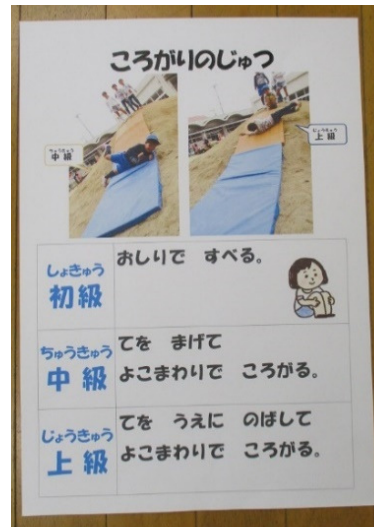 ころがりのじゅつ
ちゅうきゅう
中級
じょうきゅう
上級
しょきゅう
初級
おしりで　すべる。
ちゅうきゅう
中級
てを　まげて
よこまわりで　ころがる。
じょうきゅう
上級
てを　うえに　のばして
よこまわりで　ころがる。